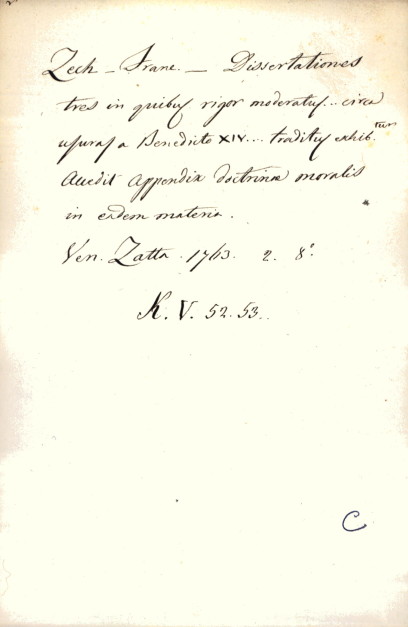 Zech - Franc. - Dissertationes
tres in quibus rigor moderatus... circa
usuras a Benedicto XIV... traditus exhib.tur
Accedit appendix doctrinæ moralis
in eadem materia.
Ven. Zatta. 1763. 2. 8º.
K. V. 52. 53.
C